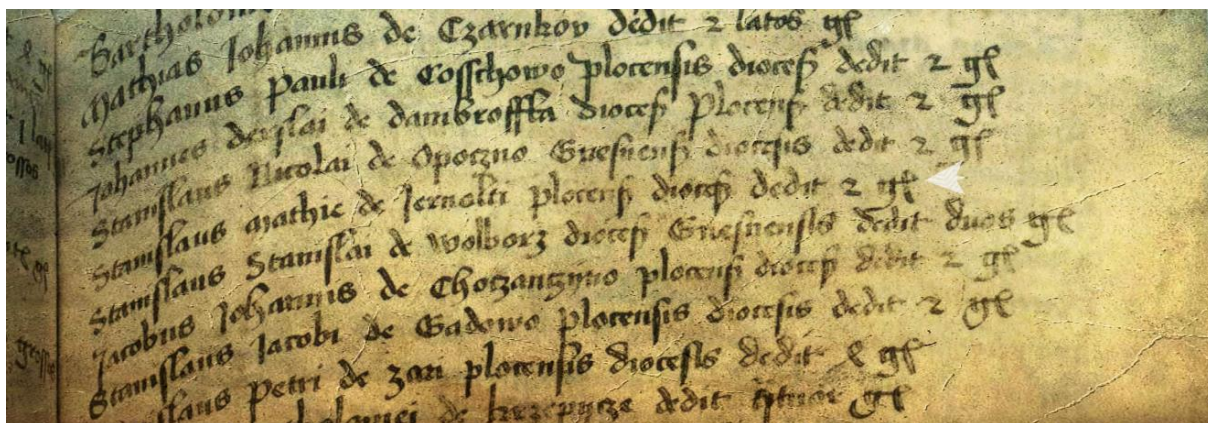 Bartholom
Mathias Johannis de Czarnkov dedit 2 latos gſ
Stephanus Pauli de Cosschowo plocensis dioceſ dedit 2 gſ
Johannes derslai de dambroffka dioceſ Plocenſ dedit 2 gſ
Stanislaus Nicolai de Opoczno Gneſnenſ diocesis dedit 2 gſ
Stanislaus Mathie de plocenſ dioceſ dedit 2 gſ
Stanislaus Stanislai de Wolborz dioceſ Gnesnensis dedit duos gſ
Jacobus Johannis de plocenſ dioceſ dedit 2 gſ
Stanislaus Jacobi de Gadowo plocensis diocesis dedit 2 gſ
slaus Petri de Zari plocensis diocesis dedit gſ
de krzepycze dedit gſ